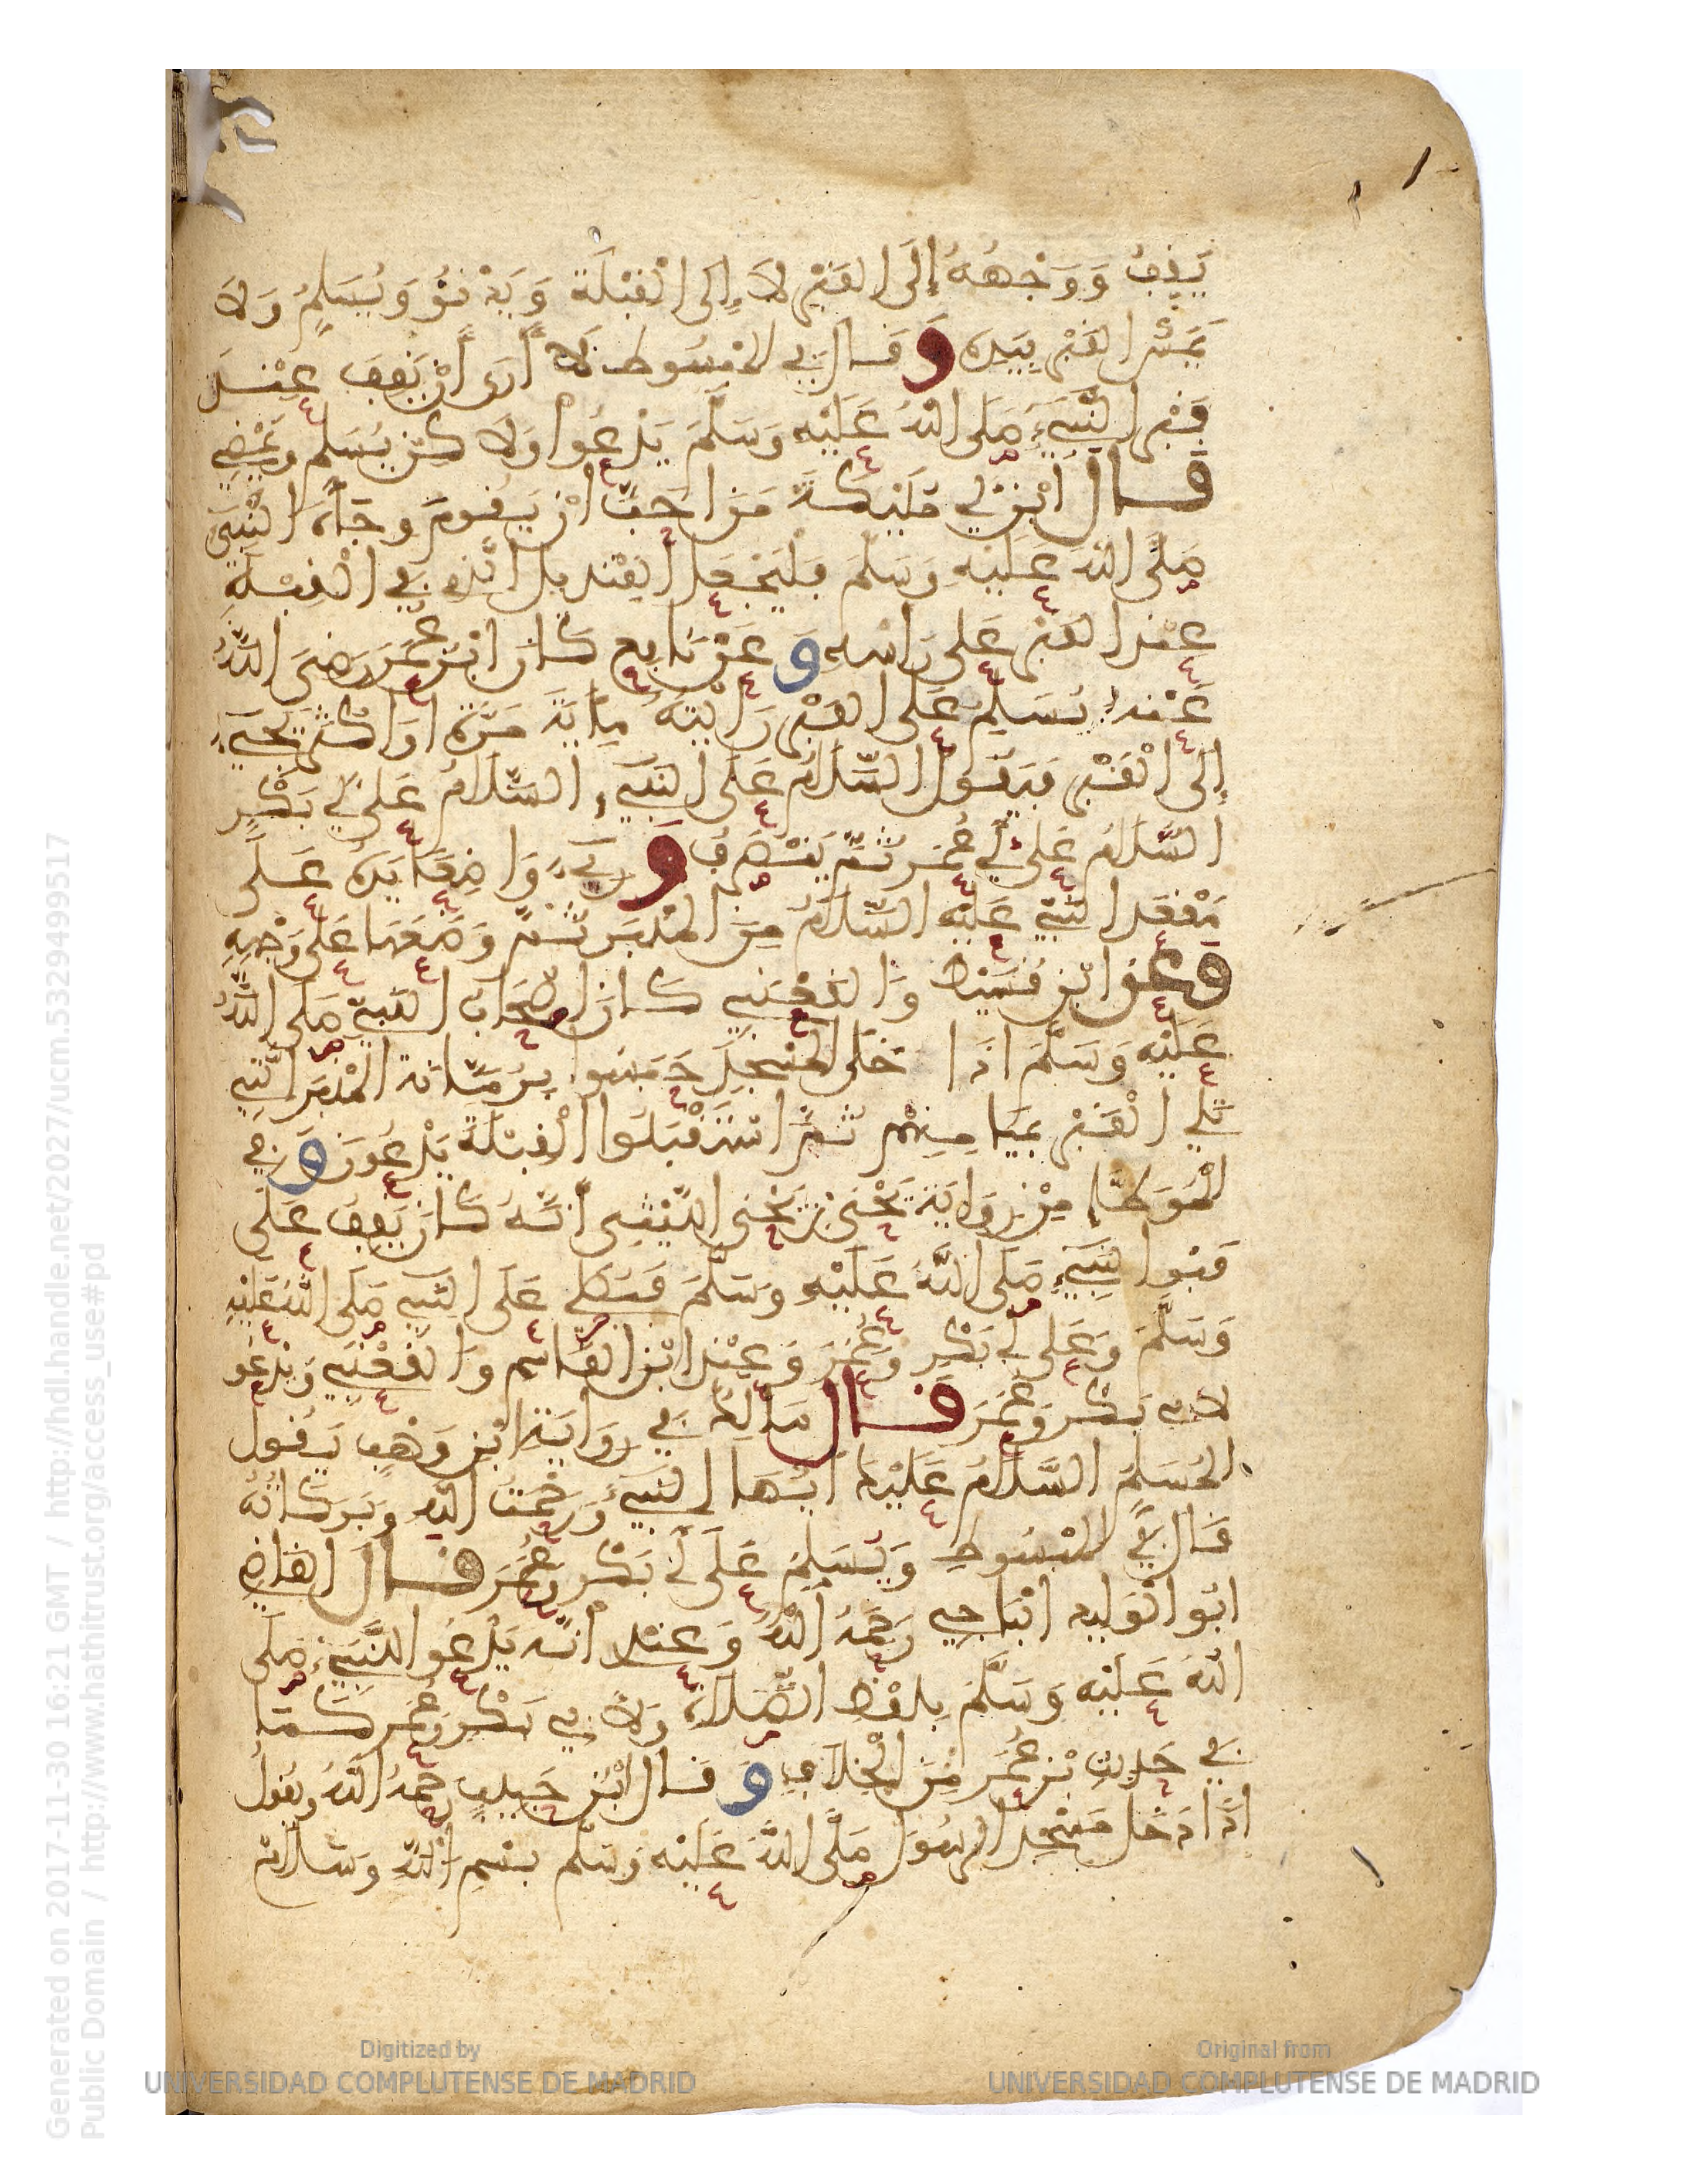 يَقِفُ وَوَجْهُهُ إِلَى القَبْرِ لَا إِلَى الْقِبْلَةِ وَيَدْنُو وَيُسَلِّمُ وَلَا
يَمَسُّ القَبْرَ بِيَدِهِ وَقَالَ فِي المَبْسُوطِ لَا أَرَى أَنْ يَقِفَ عِنْدَ
قَبْرِ النَّبِيِّ صَلَى اللهُ عَلَيْهِ وَسَلَّمَ يَدْعُوا وَلَا كِنْ يُسَلِّمُ وَيَمْضِي
قَالَ ابْنُ أَبِي مُلَيْكَةَ مَنَ احَبَّ انْ يَقُومَ وِجَاهَ النَّبِيِّ
صَلَّى اللهُ عَلَيْهِ وَسَلَّمَ فَلْيَجْعَلِ القِنْدِيلَ الَّذِي فِي الْقِبْلَةِ
عِنْدَ القَبْرِ عَلَى رَاسِهِ وَعَنْ نَافِعٍ كَانَ ابْنُ عُمَرَ رَضِيَ اللهُ
عَنْهُ يُسَلِّمُ عَلَى القَبْرِ رَايْتُهُ مِايَةَ مَرَّةٍ اوَاكْثَرَ يَجِيءُ
إِلَى الْقَبْرِ فَيَقُولُ السَّلَامُ عَلَى النَّبِيِّ السَّلَامُ عَلَى أَبِي بَكْرٍ
السَّلَامُ عَلَى أَبِي عُمَرَ ثُمَّ يَنْصَرِفُ وَرِيءَ وَاضِعًا يَدَهُ عَلَى
مَقْعَدِ النَّبِيِّ عَلَيْهِ السَّلَامُ مِنَ المِنْبَرِ ثُمَّ وَضَعَهَا عَلَى وَجْهِهِ
وَعَنِ ابْنِ قُسَيْطٍ وَالقَعْنَبِي كَانَ اصْحَابُ النَّبِيِّ صَلَى اللهُ
عَلَيْهِ وَسَلَّمَ اذَا خَلَى المَسْجِدُ حَبَسُوا بِرُمَّانَةِ المِنْبَرِ الَّتِي
تَلِي الْقَبْرَ بِمَيَامِنِهِمْ ثُمَّ اسْتَقْبَلُوا الْقِبْلَةَ يَدْعُونَ وَفِي
المُوَطَّإِ مِنْ رِوَايَةِ يَحْيَى بْنِ يَحْيَى اللَّيْثِي أَنَّهُ كَانَ يَقِفُ عَلَى
قَبْرِ النَّبِيِّ صَلَى اللهُ عَلَيْهِ وَسَلَّمَ فَيُصَلِي عَلَى النَّبِيِّ صَلَى اللهُ عَلَيْهِ
وَسَلَّمَ وَعَلَى أَبِي بَكْرٍ وَعُمَرَ وَعِنْدَ ابْنِ القَاسِمِ وَالقَعْنَبِي وَيَدْعُو
لِأَبِي بَكْرٍ وَعُمَرَ قَالَ مَالِكٌ فِي رِوَايَةِ ابْنِ وَهْبٍ يَقُولُ
المُسَلِّمُ السَّلَامُ عَلَيْكَ أَيُّهَا النَّبِيءُ وَرَحْمَتُ اللهِ وَبَرَكَاتُهُ
قَالَ فِي المَبْسُوطِ وَيُسَلِّمُ عَلَى أَبِي بَكْرٍ وَعُمَرَ قَالَ القَاضِي
ابُو الْوَلِيدِ الْبَاجِي رَحِمَهُ اللهُ وَعِنْدِي أَنَّهُ يَدْعُو لِلنَّبِيِّ صَلَى
اللهُ عَلَيْهِ وَسَلَّمَ بِلَفْظِ الصَّلَاةِ وَلِأَبِي بَكْرٍ وَعُمَرَ كَمَا
فِي حَدِيثِ بْنِ عُمَرَ مِنَ الْخِلَافِ وَقَالَ ابْنُ حَبِيبٍ رَحِمَهُ اللهُ وَيَقُولُ
اذَا دَخَلَ مَسْجِدَ الرَّسُولِ صَلَّى اللهُ عَلَيْهِ وَسَلَّمَ بِسْمِ اللهِ وَسَلَامٌ
Generated on 2017-11-30 16:21 GMT / http://hdl.handle.net/2027/ucm.5329499517
Public Domain / http://www.hathitrust.org/access_use#pd
Digitized by
UNIVERSIDAD COMPLUTENSE DE MADRID
Original from
UNIVERSIDAD COMPLUTENSE DE MADRID